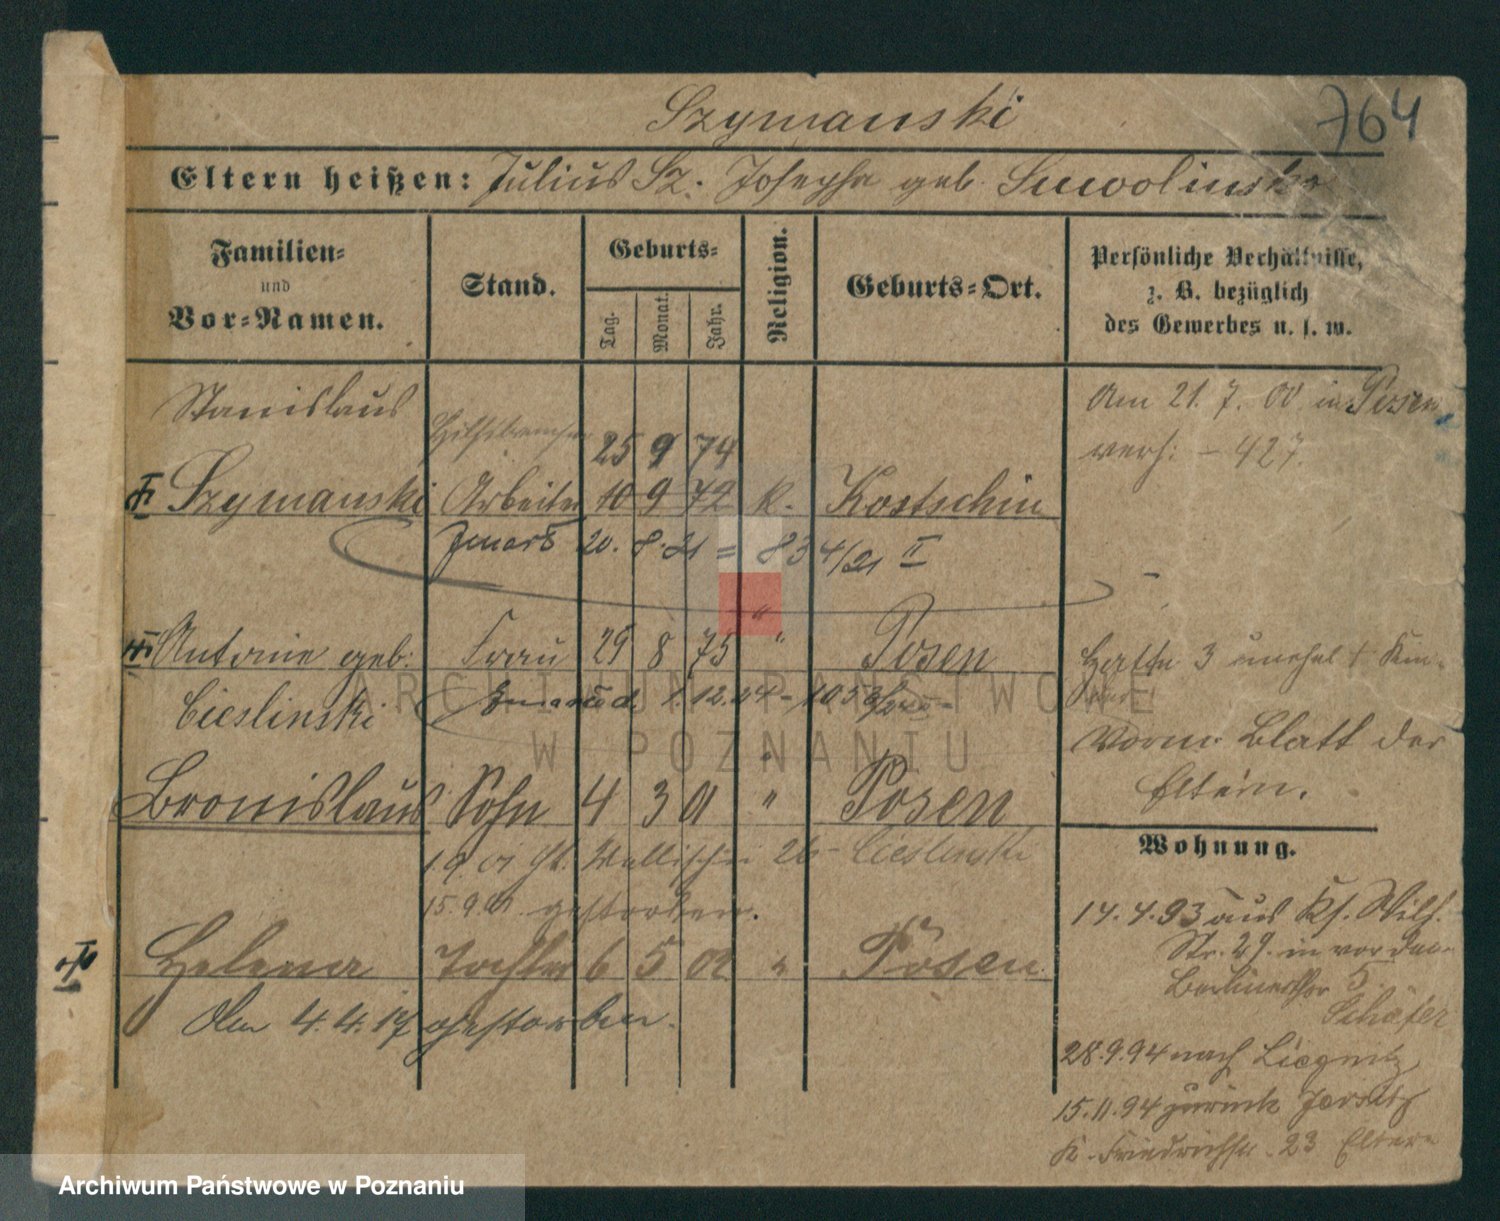 764
Szymanski
Eltern heißen: Julius Sz. Josepha geb. Suwolinska
Familien-
und
Vor-Namen.
Stand.
Geburts-
Tag.
Monat.
Jahr.
Religion.
Geburts-Ort.
Persönliche Verhältnisse,
z. B. bezüglich
des Gewerbes u. s. w.
Stanislaus
25 9 74
Szymanski Arbeiter 10 9 72 k. Kostschin
20. 8. 21 = 83 4/21 II
Am 21. 7. 00 in Posen
verh: - 427.
Antonie geb: Frau 29 8 75 " Posen
Cieslinski
Hatte 3 unehel †
Vorm. Blatt der
Eltern.
Bronislaus Sohn 4 3 01 " Posen
1 9 01 Wallischei 26 - Cieslinski
15.9.01. gestorben.
Helena Tochter 6 5 02 " Posen
Am 4.4.17 gestorben.
Wohnung.
14.4.93 aus Kf. Wilh.
Str. 29. in vor dem
Berlinerthor 5.
Schäfer
28.9.94 nach Liegnitz
15.11.94 zurück Jersitz
K. Friedrichstr. 23 Eltern
ARCHIWUM PAŃSTWOWE
W POZNANIU
Archiwum Państwowe w Poznaniu